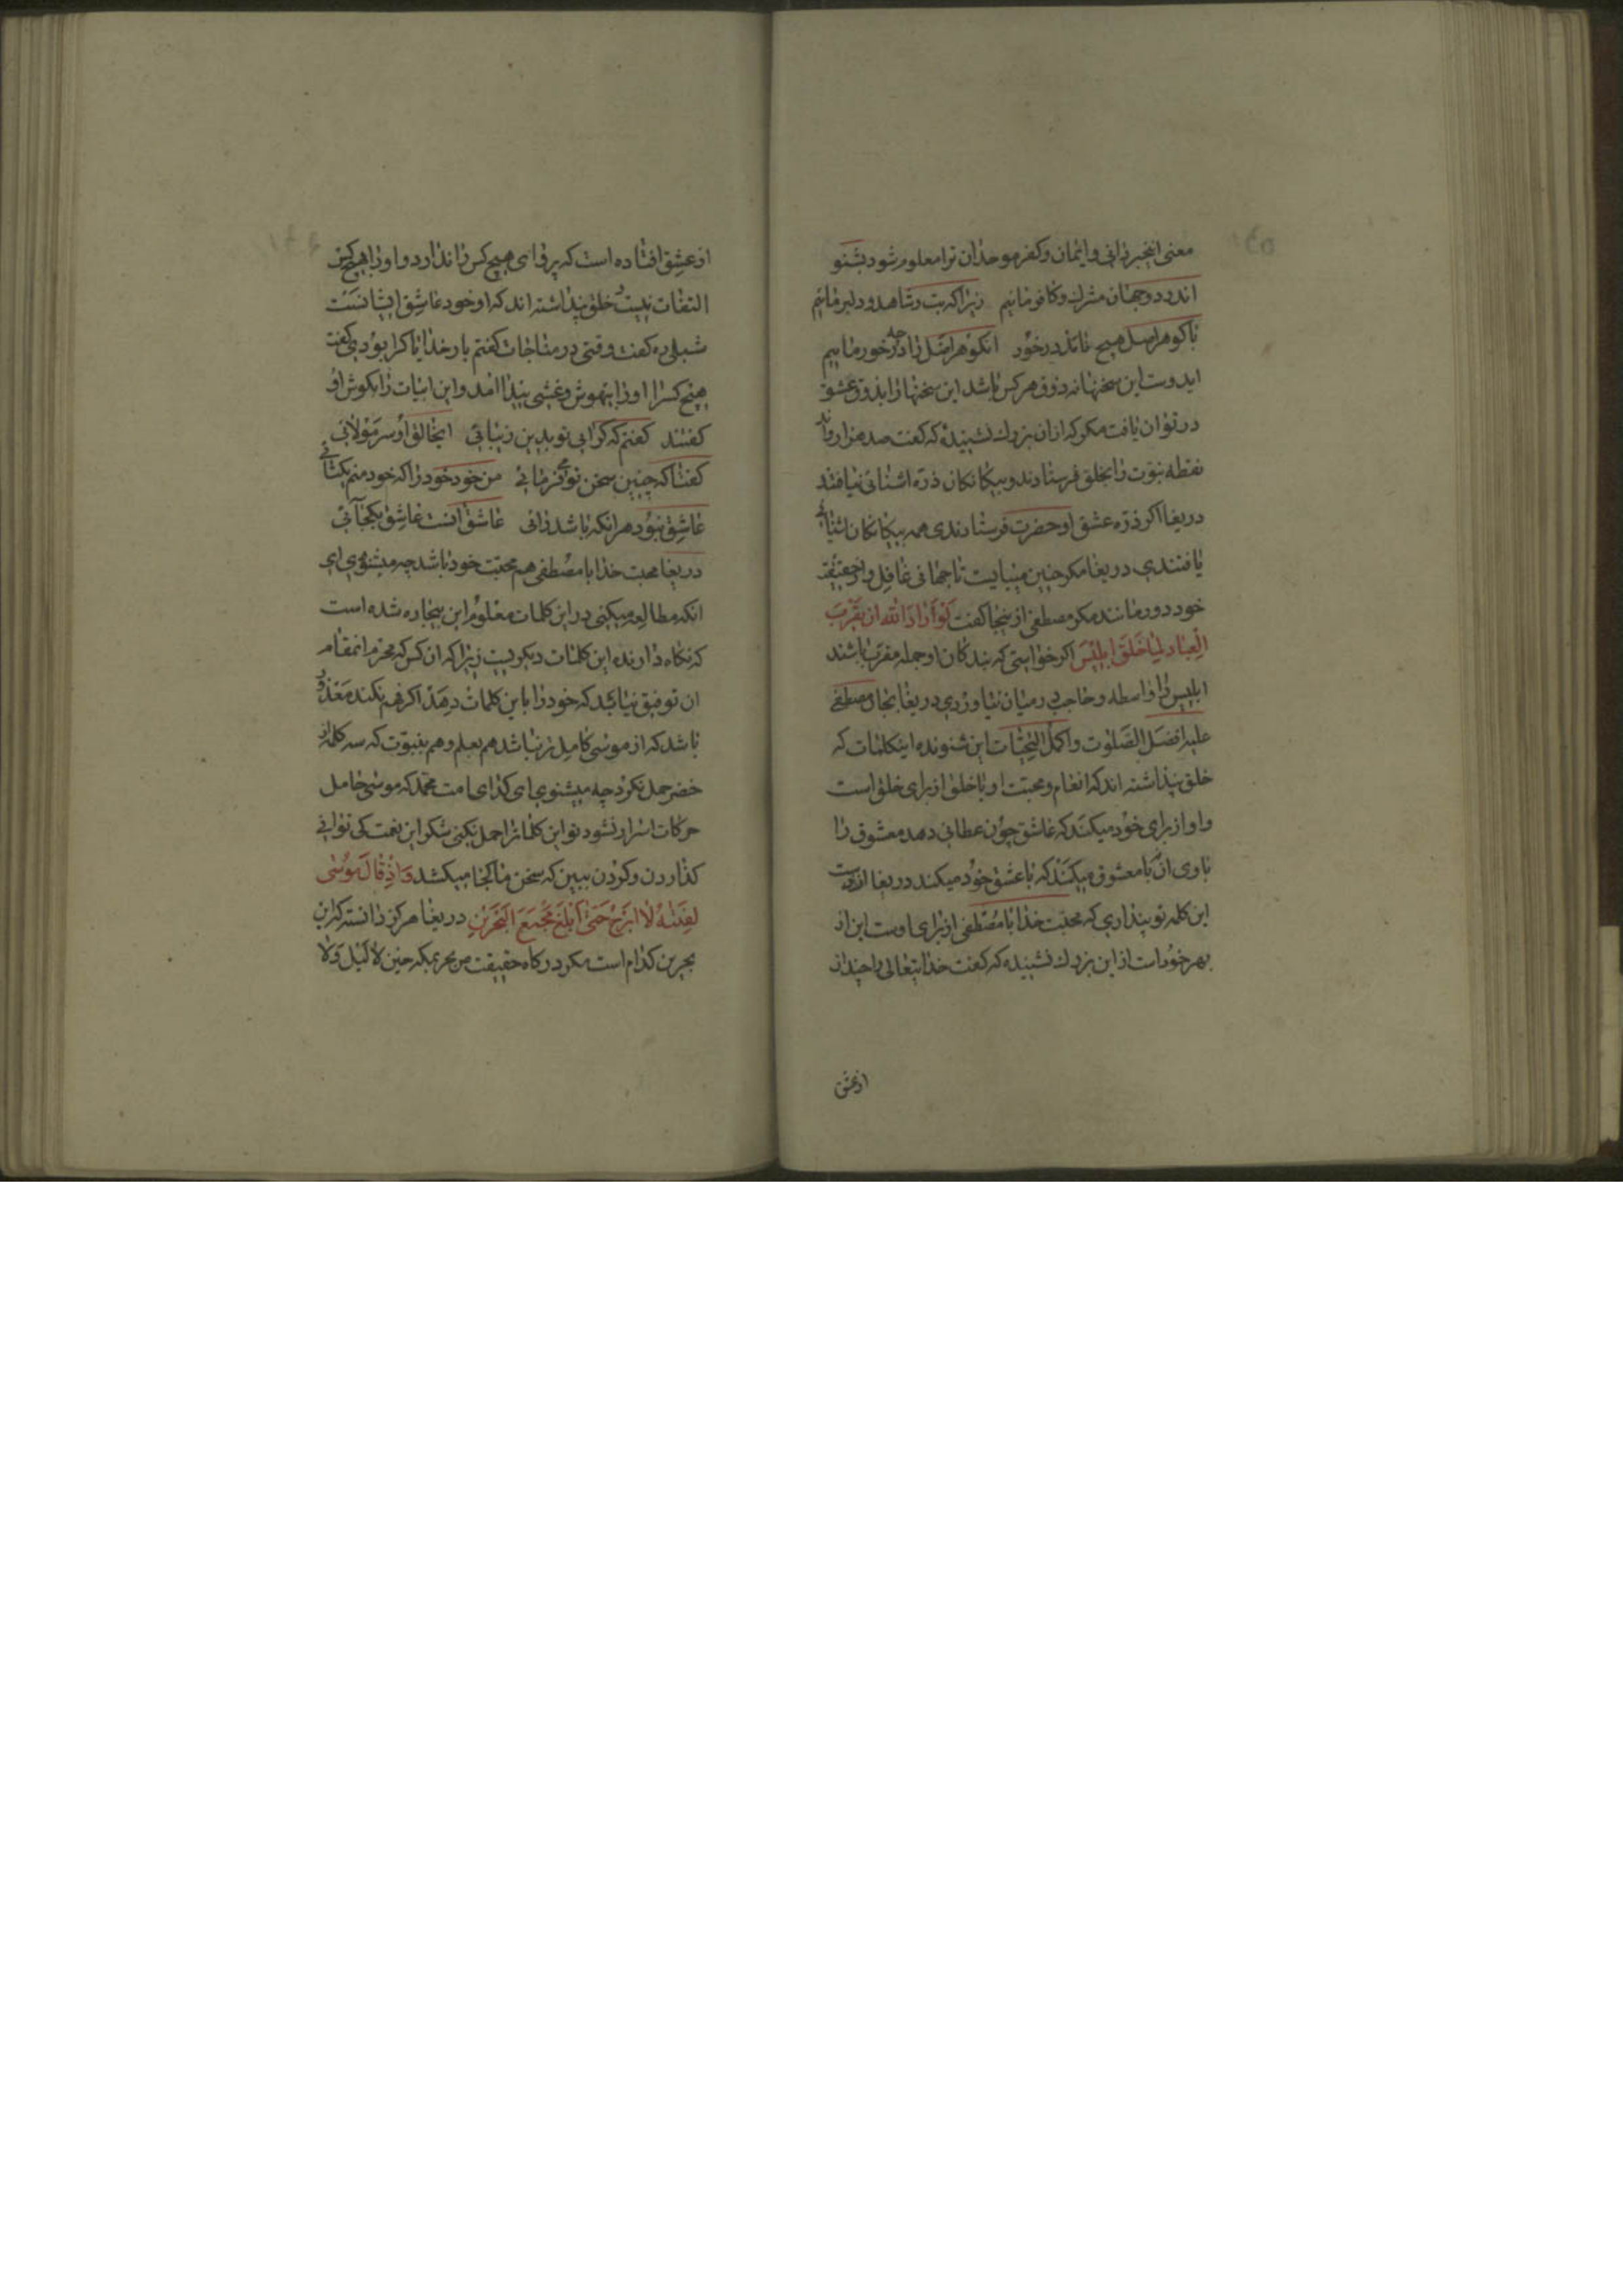 معنی اینخبر دانی و ایمان و کفر موحدان ترا معلوم شود بشنو
اندر دو جهان مشرک و کافر مائیم زیرا که بت و شاهد و دلبر مائیم
با کوهر اصل هیچ نائد درخور انکوهر اصل را در جه خور مائیم
ایدوست این سخنها نه ذوق هر کس باشد این سخنها را بذوق عشق
در توان یافت مکر که ازان بزرک نشنیدۀ که کفت صد هزار و اند
نقطه نبوت را بخلق فرستادند و بیکانکان ذرّه اشنائی نیافتند
دریغا اکر ذرّه عشق او حضرت فرستادندی همه بیکانکان اشنائی
یافتندی دریغا مکر چنین میبایست تا جهانی غافل و از حقیقت
خود دور مانند مکر مصطفی از ینجا کفت لَوْ اَرَادَ اللّه ان یقرّب
الْعِبَاد لَمٰا خَلَقَ ابلیْسَ اکر خواستی که بندکان او جمله مقرب باشند
ابلیس را واسطه و حاجب در میان نیاوردی دریغا بجان مصطفی
علیه افضل الصّلوت و اکمل التحیّات این شنونده اینکلمات که
خلق پنداشته اند که انعام و محبت او با خلق از برای خلق است
و او از برای خود میکند که عاشق چون عطائی دهد معشوق را
با وی ان نه با معشوق میکند که با عشق خود میکند دریغا از دست
این کلمه تو پنداری که محبت خدا با مصطفی از برای اوست این از
بهر خود است از این بزرک نشنیدۀ که کفت خدایتعالی را چندان
از عشق
از عشق افتاده است که پروای هیچ کس را ندارد و او را بهیچ کس
التفات نیست و خلق پنداشته اند که او خود عاشق ایشانست
شبلی ره کفت وقتی در مناجات کفتم بار خدایا کرا بودی کفت
هیچ کسرا او را بیهوش و غشی پیدا امد و این ابیات را بکوش او
کفتند کفتم که کرائی تو بدین زیبائی اینجا لق او سر مولائی
کفتا که چنین سخن تو می فرمائی من خود خود را که خود منم یکتائی
عاشق نبود هر انکه باشد دانی عاشق انست عاشق یکجائی
دریغا محبت خدا با مصطفی هم محبت خود باشد چه میشنوی ای
انکه مطالعه میکنی در این کلمات معلوم این بیچاره شده است
که نکاه دارنده این کلمات دیکریست زیرا که ان کس که محرم انمقام
ان توفیق نیابد که خود را با این کلمات دهد اکر فهم نکند معذور
باشد که از موسی کامل تر نباشد هم بعلم و هم بنبوّت که سه کلمه از
خضر حمل نکرد چه میشنوی ای کدای امت محمّد که موسی حامل
حرکات اسرار نشود تو این کلماترا حمل نکنی شکر این نعمت کی توانی
کذاردن و کردن ببین که سخن ما کجا میکشد وَاِذْ قَالَ مُوْسٰی
لِفَتٰیهُ لاٰ ابْرَحُ حَتّٰی اَبْلُغَ مَجْمَعَ الْبَحْرَیْنِ دریغا هرکز دانسته که این
بحرین کدام است مکر درکاه حقیقت من بحر بمکه حین لا لَیْل وَلٰا